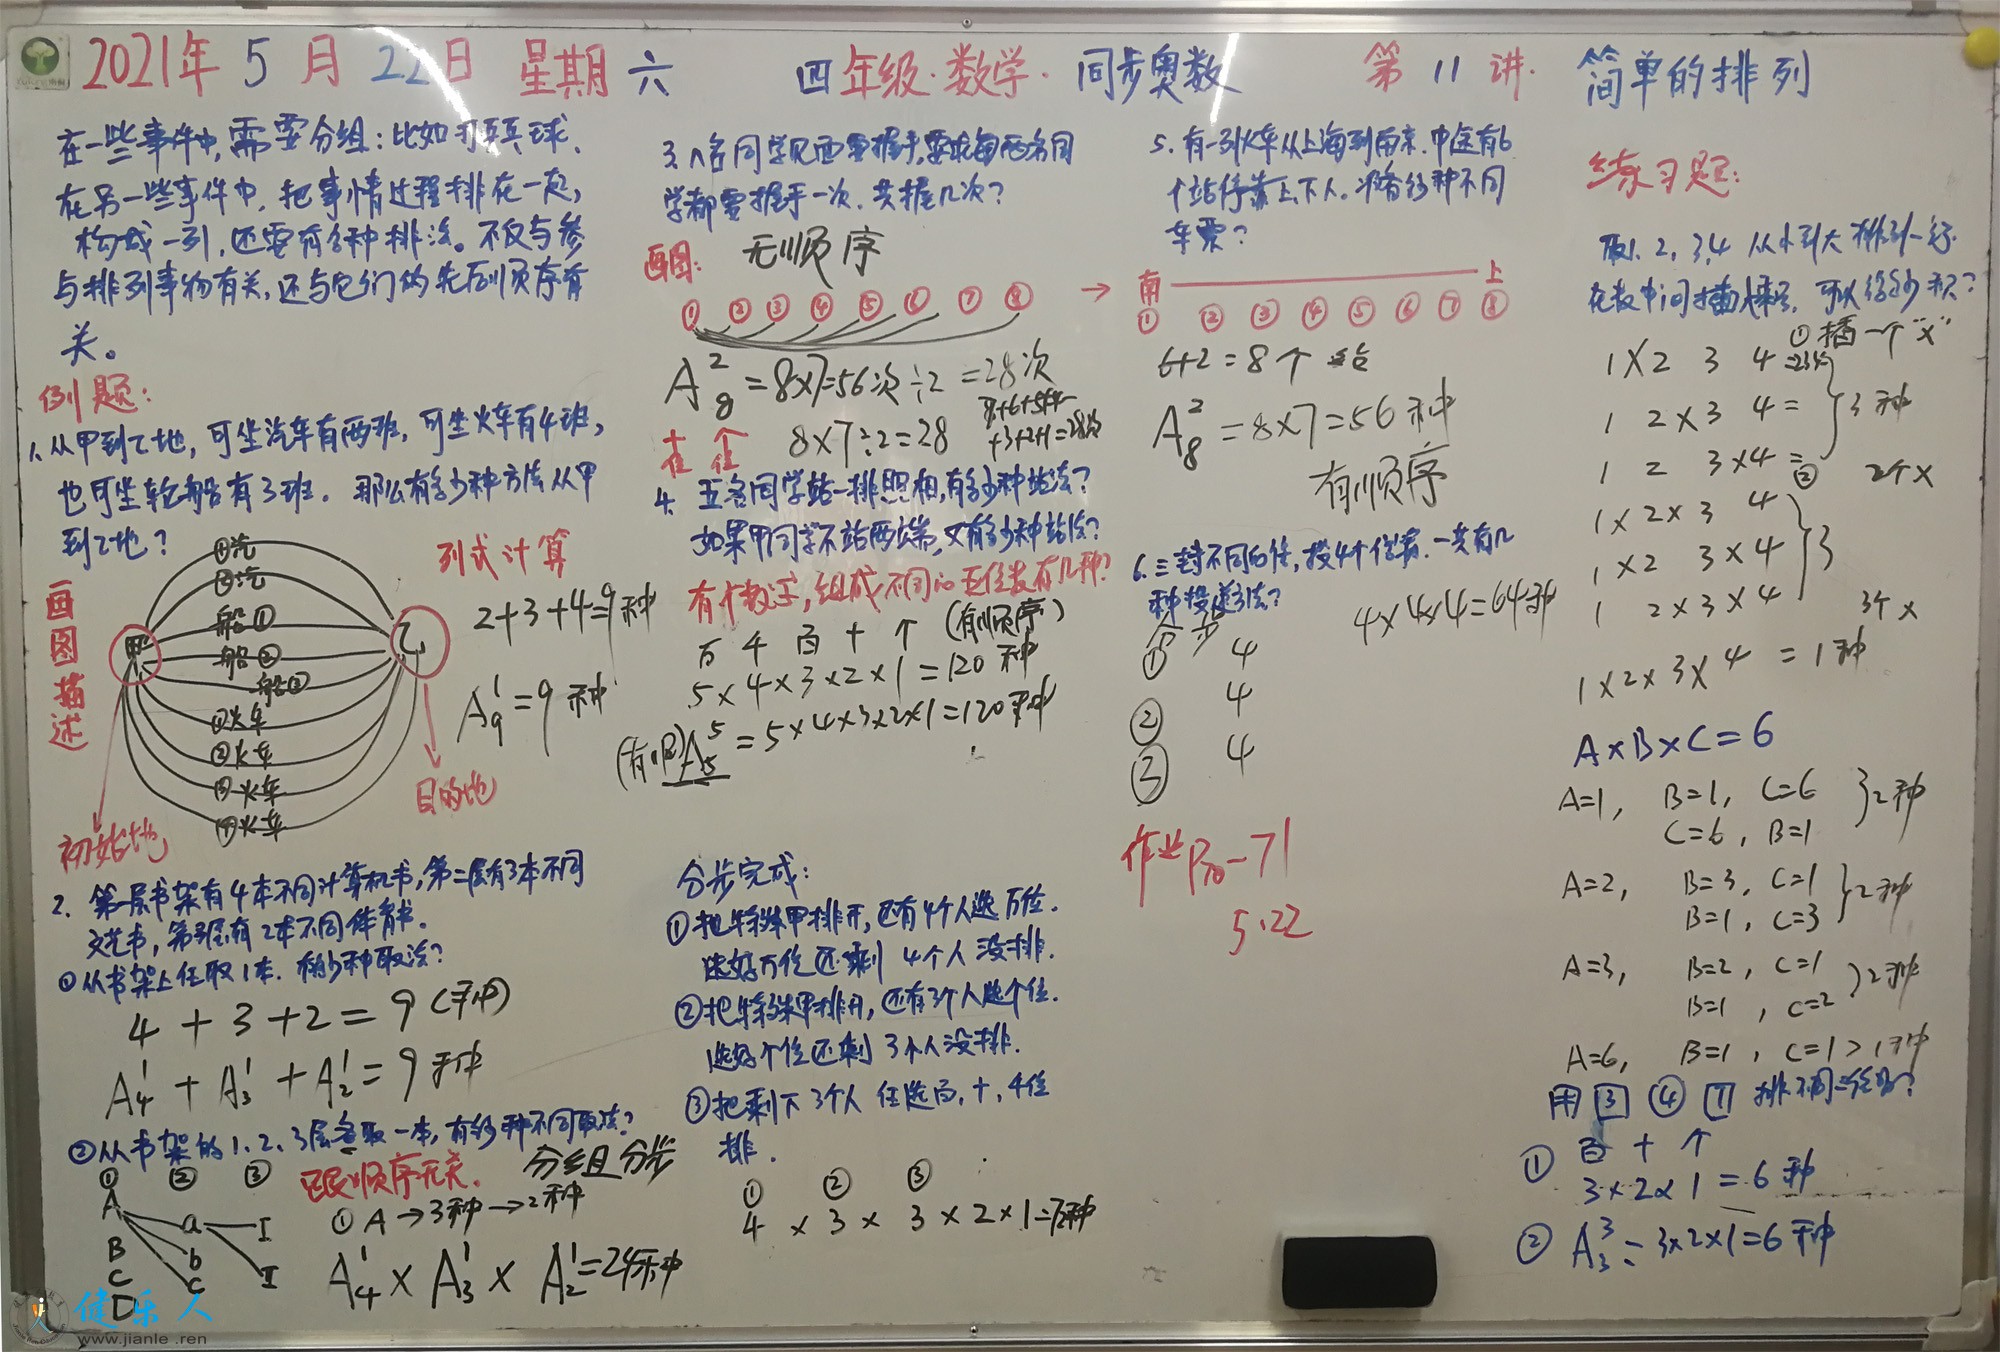 2021年 5 月 22日 星期六 四年级·数学· 同步奥数 第 11 讲· 简单的排列
在一些事件中,需要分组:比如打乒乓球.
在另一些事件中,把事情过程排在一起,
构成一列,还要有多种排法。不仅与参
与排列事物有关,还与它们的先后顺序有
关。
例题:
1.从甲到乙地,可坐汽车有两班,可坐火车有4班,
也可坐轮船有3班. 那么有多少种方法从甲
到乙地?
画图描述
①汽
②汽
船①
船②
船③
①火车
②火车
③火车
④火车
甲
乙
初始地
目的地
列式计算
2+3+4=9种
A₉¹=9种
2. 第一层书架有4本不同计算机书,第二层有3本不同
文艺书,第3层有2本不同体育书.
①从书架上任取1本.有多少种取法?
4+3+2=9(种)
A₄¹+A₃¹+A₂¹=9种
②从书架的1、2、3层各取一本,有多少种不同取法?
① ② ③
A a I
B b
C c II
D
跟顺序无关.
分组分步
① A→3种→2种
A₄¹×A₃¹×A₂¹=24种
3.八名同学见面要握手,要求每两名同
学都要握手一次.共握几次?
画图: 无顺序
① ② ③ ④ ⑤ ⑥ ⑦ ⑧ →
A₈²=8×7=56次÷2=28次
8×7÷2=28
+3+2+1=28次
4. 五名同学站一排照相,有多少种站法?
如果甲同学不站两端,又有多少种站法?
有个数字,组成不同的五位数有几种?
万 千 百 十 个 (有顺序)
5×4×3×2×1=120种
(有顺)A₅⁵=5×4×3×2×1=120种
分步完成:
①把特殊甲排开,还有4个人选万位.
选好万位还剩4个人没排.
②把特殊甲排开,还有3个人选个位.
选好个位还剩3个人没排.
③把剩下3个人任选百,十,千位
排.
① ② ③
4 × 3 × 3×2×1=72种
5. 有一列火车从上海到南京.中途有6
个站停靠上下人.准备多少种不同
车票?
南 上
① ② ③ ④ ⑤ ⑥ ⑦ ⑧
6+2=8个站
A₈²=8×7=56种
有顺序
6.三封不同的信,投4个信箱.一共有几
种投递方法?
4×4×4=64种
分步
① 4
② 4
③ 4
作业P70-71
5.22
练习题:
取1.2,3,4 从小到大排列一行.
在数中间插乘号,可以多少积?
①插一个"×"
1×2 3 4=234
1 2×3 4= 3种
1 2 3×4=
② 2个×
1×2×3 4
1×2 3×4 3
1 2×3×4
3个×
1×2×3×4 =1种
A×B×C=6
A=1, B=1, C=6 2种
C=6, B=1
A=2, B=3, C=1 2种
B=1, C=3
A=3, B=2, C=1 2种
B=1, C=2
A=6, B=1, C=1 1种
用 3 4 7 排不同三位数?
① 百 十 个
3×2×1=6种
② A₃³=3×2×1=6种
健乐人
www.jianle.ren